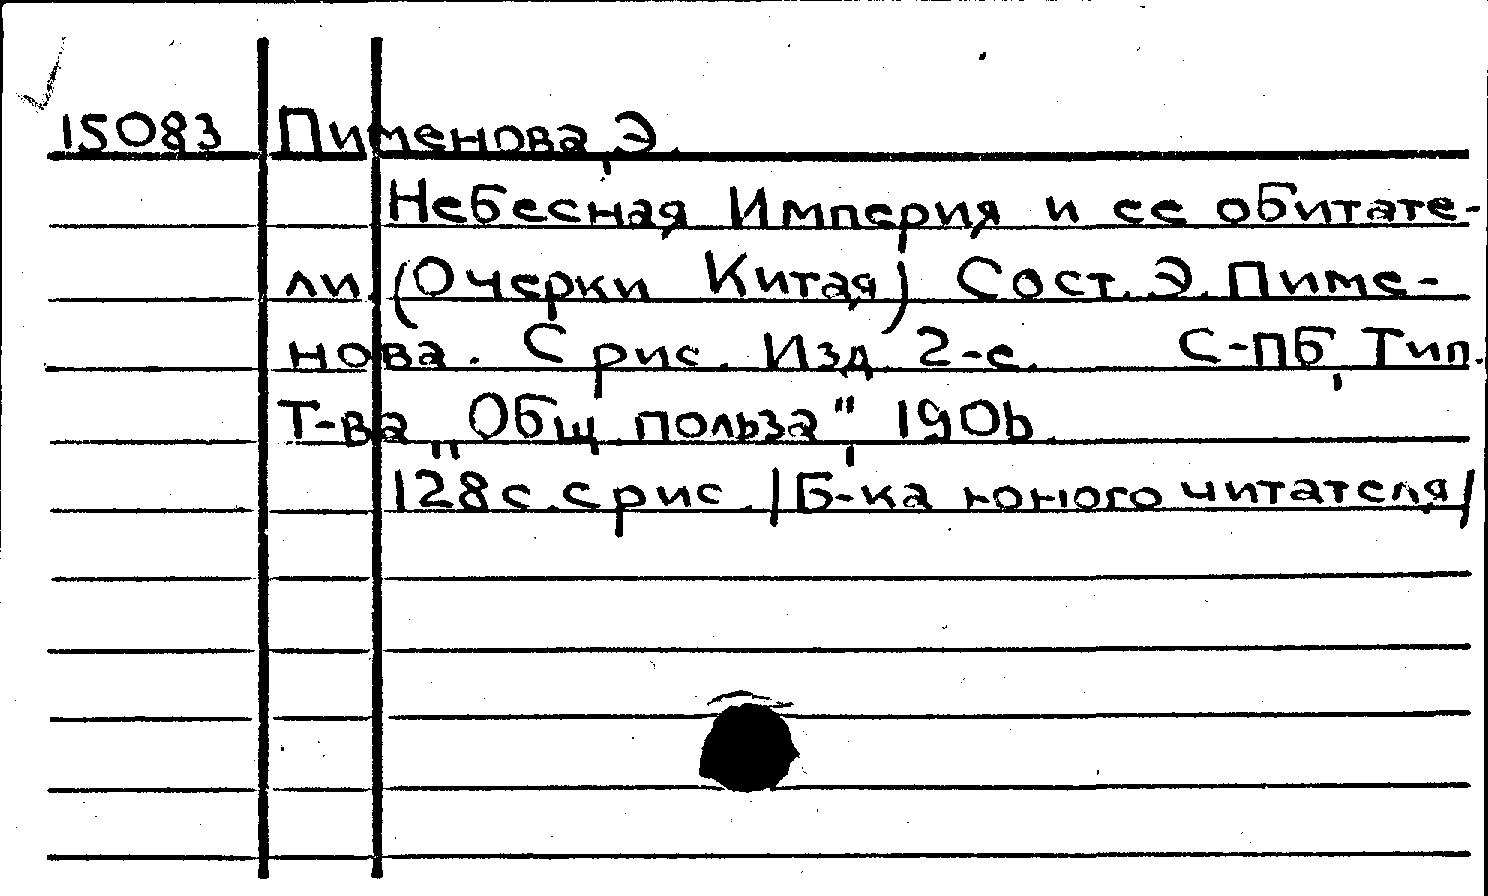 15083 Пименова, Э.
Небесная Империя и ее обитате-
ли (Очерки Китая) Сост. Э. Пиме-
нова. С рис. Изд. 2-е. С-ПБ, Тип.
Т-ва „Общ. польза", 1906.
128 с. с рис. /Б-ка юного читателя/